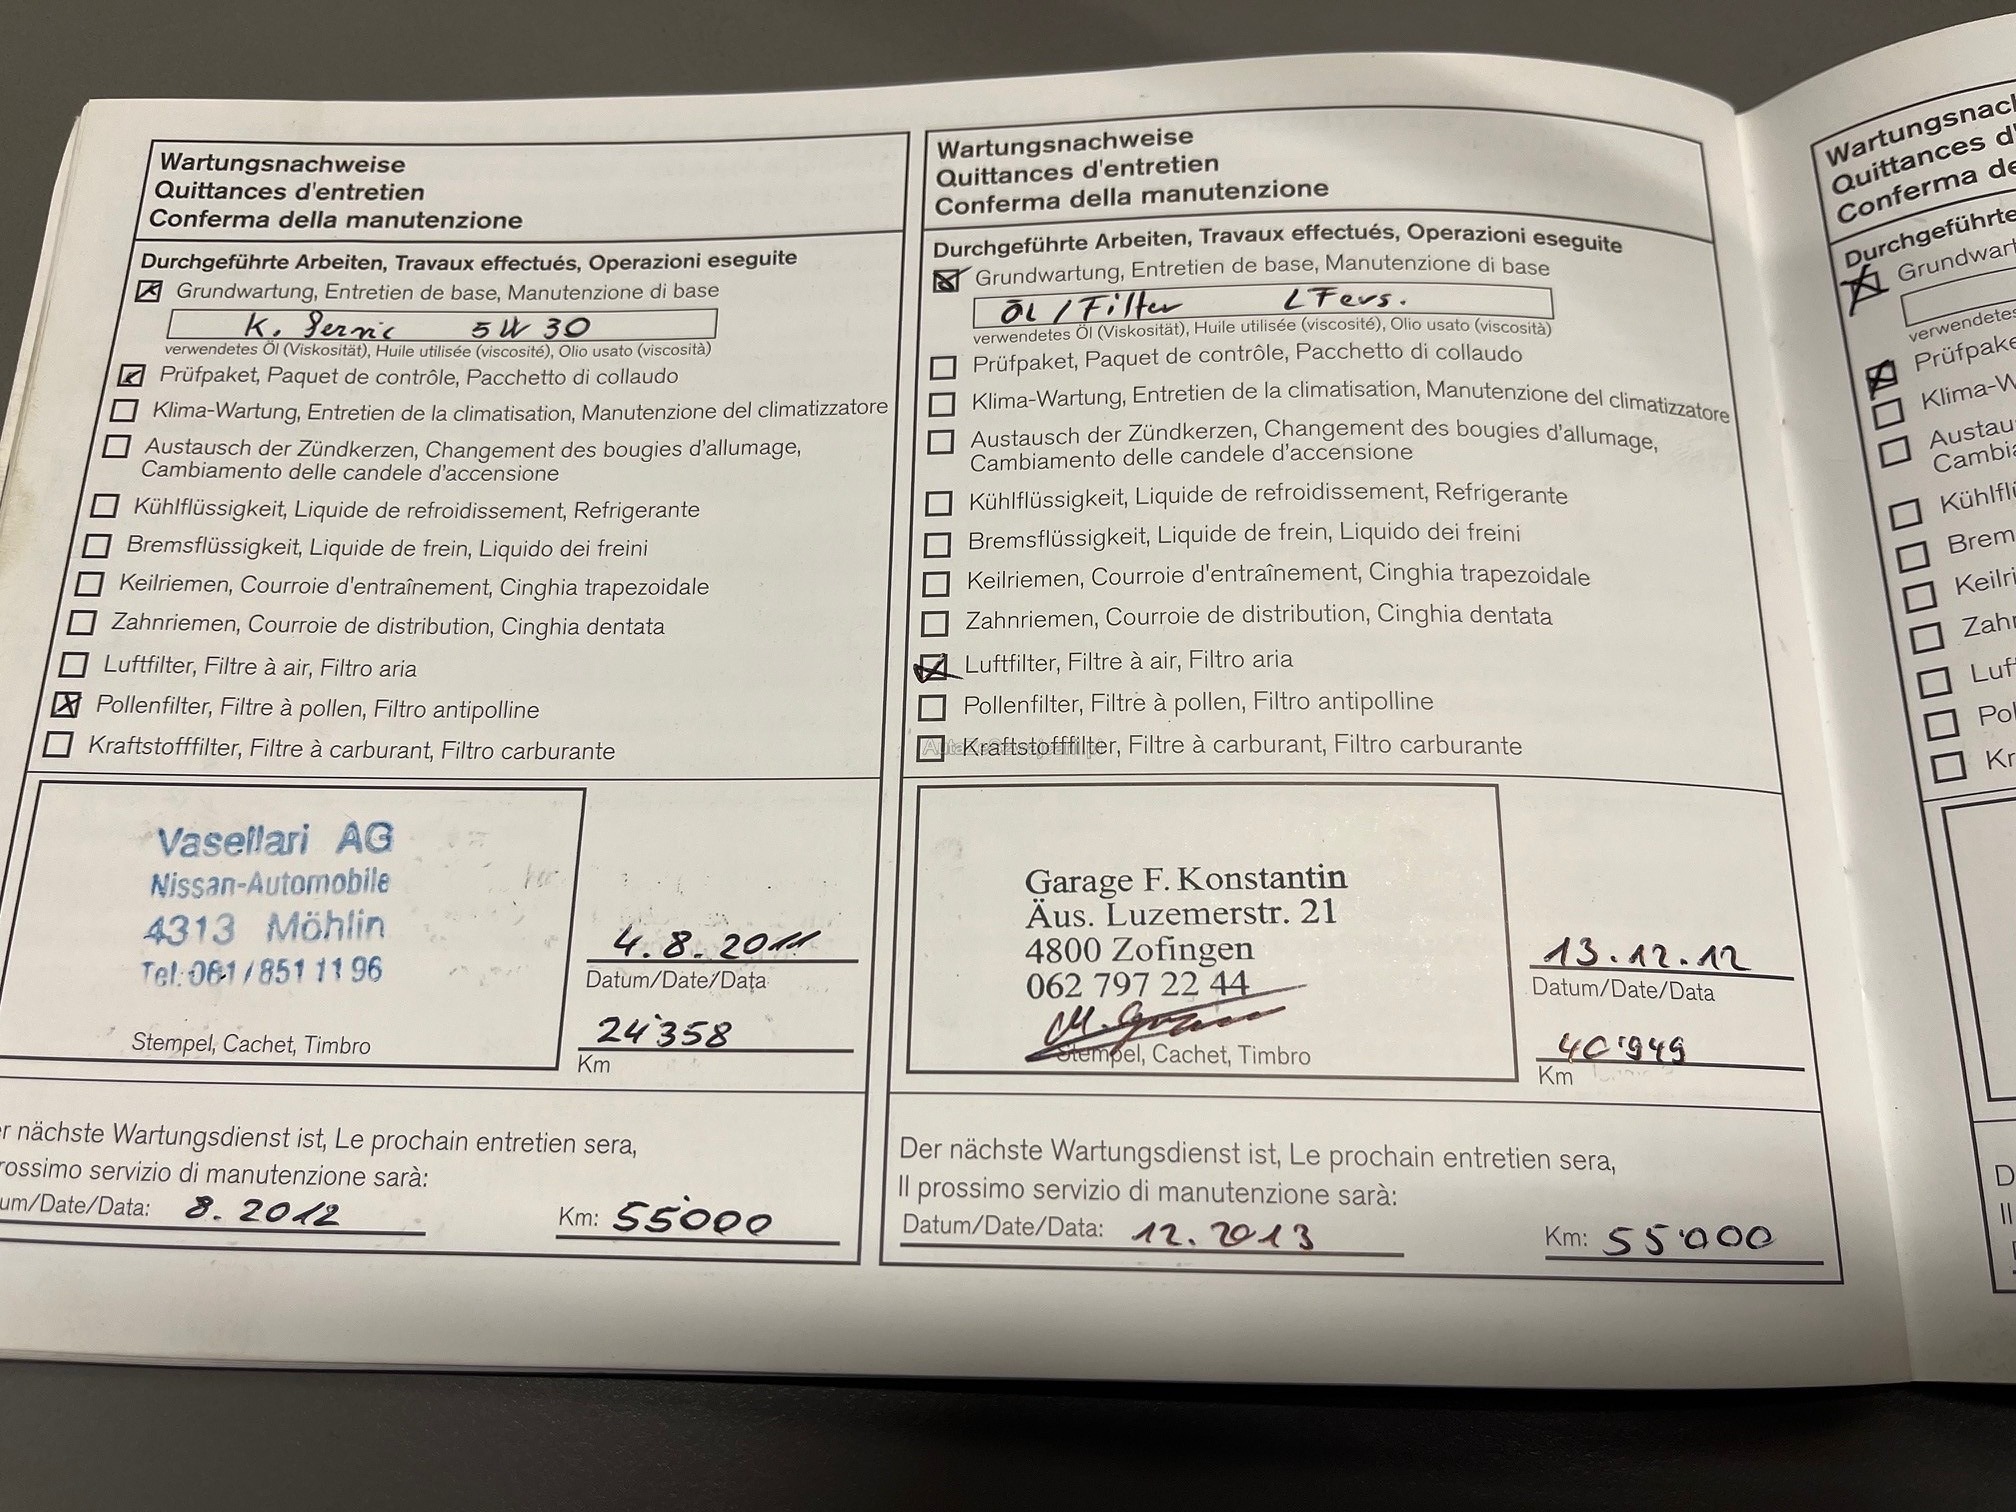 Wartungsnachweise
Quittances d'entretien
Conferma della manutenzione
Durchgeführte Arbeiten, Travaux effectués, Operazioni eseguite
Grundwartung, Entretien de base, Manutenzione di base
K. Servic 5W30
verwendetes Öl (Viskosität), Huile utilisée (viscosité), Olio usato (viscosità)
Prüfpaket, Paquet de contrôle, Pacchetto di collaudo
Klima-Wartung, Entretien de la climatisation, Manutenzione del climatizzatore
Austausch der Zündkerzen, Changement des bougies d'allumage,
Cambiamento delle candele d'accensione
Kühlflüssigkeit, Liquide de refroidissement, Refrigerante
Bremsflüssigkeit, Liquide de frein, Liquido dei freini
Keilriemen, Courroie d'entraînement, Cinghia trapezoidale
Zahnriemen, Courroie de distribution, Cinghia dentata
Luftfilter, Filtre à air, Filtro aria
Pollenfilter, Filtre à pollen, Filtro antipolline
Kraftstofffilter, Filtre à carburant, Filtro carburante
Vasellari AG
Nissan-Automobile
4313 Möhlin
Tel: 061/851 11 96
Stempel, Cachet, Timbro
4.8.2011
Datum/Date/Data
24'358
Km
r nächste Wartungsdienst ist, Le prochain entretien sera,
rossimo servizio di manutenzione sarà:
um/Date/Data: 8.2012 Km: 55'000
Wartungsnachweise
Quittances d'entretien
Conferma della manutenzione
Durchgeführte Arbeiten, Travaux effectués, Operazioni eseguite
Grundwartung, Entretien de base, Manutenzione di base
Öl/Filter
verwendetes Öl (Viskosität), Huile utilisée (viscosité), Olio usato (viscosità)
Prüfpaket, Paquet de contrôle, Pacchetto di collaudo
Klima-Wartung, Entretien de la climatisation, Manutenzione del climatizzatore
Austausch der Zündkerzen, Changement des bougies d'allumage,
Cambiamento delle candele d'accensione
Kühlflüssigkeit, Liquide de refroidissement, Refrigerante
Bremsflüssigkeit, Liquide de frein, Liquido dei freini
Keilriemen, Courroie d'entraînement, Cinghia trapezoidale
Zahnriemen, Courroie de distribution, Cinghia dentata
Luftfilter, Filtre à air, Filtro aria
Pollenfilter, Filtre à pollen, Filtro antipolline
Kraftstofffilter, Filtre à carburant, Filtro carburante
Garage F. Konstantin
Äus. Luzernerstr. 21
4800 Zofingen
062 797 22 44
Stempel, Cachet, Timbro
13.12.12
Datum/Date/Data
40'949
Km
Der nächste Wartungsdienst ist, Le prochain entretien sera,
Il prossimo servizio di manutenzione sarà:
Datum/Date/Data: 12.2013 Km: 55'000
Wartungsnac
Quittances d'
Conferma de
Durchgeführte
Grundwart
verwendetes
Prüfpake
Klima-W
Austau
Cambia
Kühlflü
Brem
Keilri
Zahn
Luf
Pol
Kr
D
Il